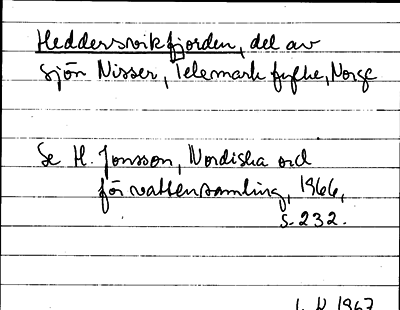 Heddersvikfjorden, del av
sjön Nisser, Telemark fylke, Norge
Se H. Jonsson, Nordiska ord
för vattensamling, 1966,
s. 232.
1967